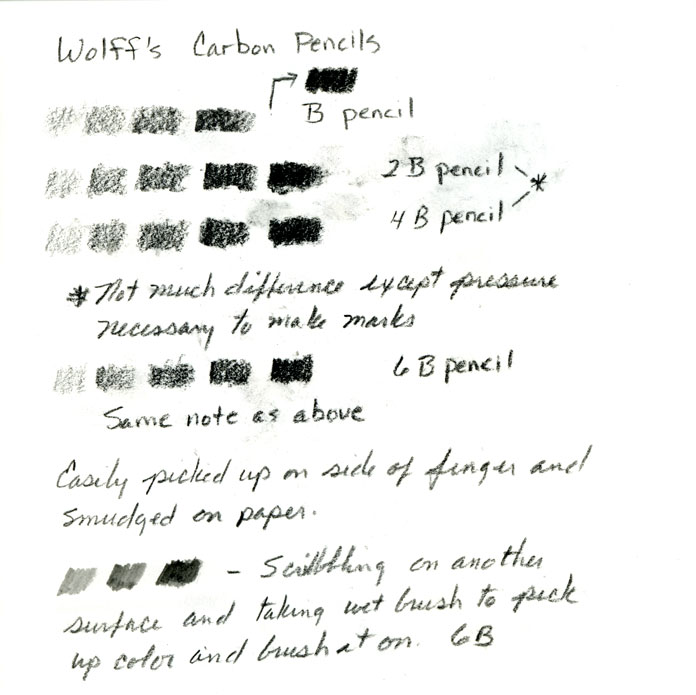 Wolff's Carbon Pencils
B pencil
2B pencil
*
4B pencil
* Not much difference except pressure
necessary to make marks
6B pencil
Same note as above
Easily picked up on side of finger and
smudged on paper.
- Scribbling on another
surface and taking wet brush to pick
up color and brush it on. 6B